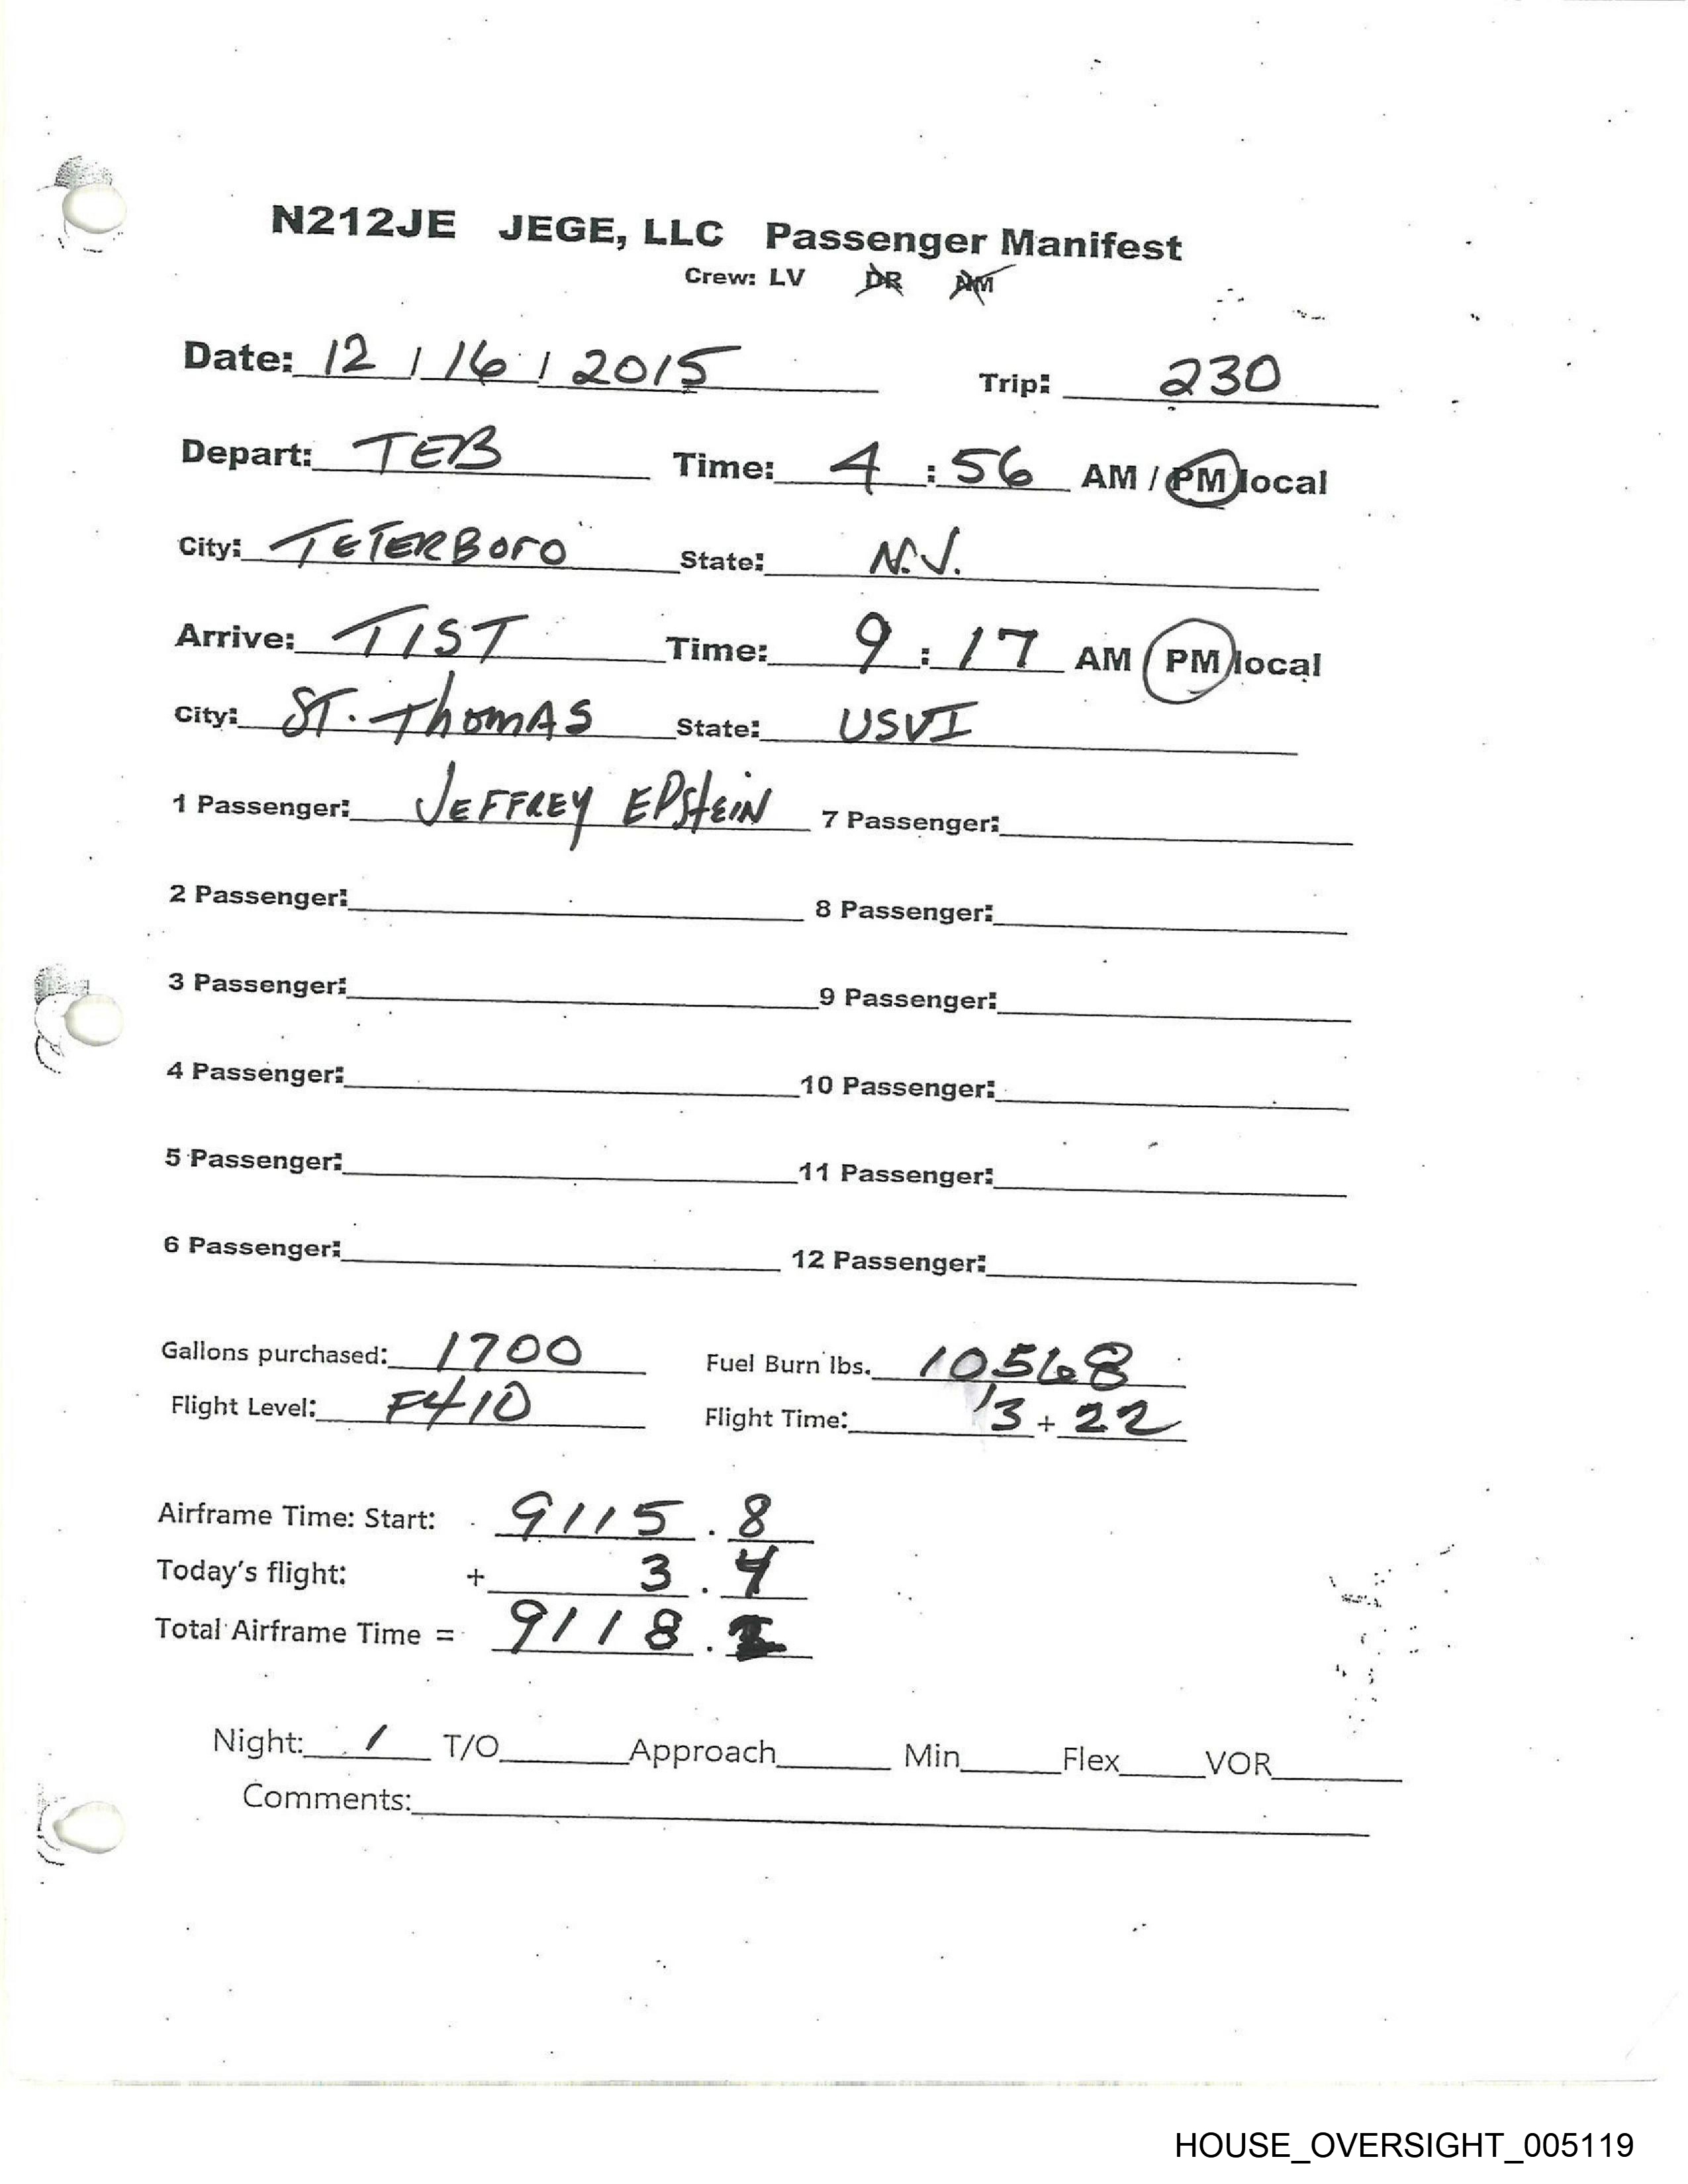 N212JE JEGE, LLC Passenger Manifest
Crew: LV DR AM
Date: 12 / 16 / 2015 Trip: 230
Depart: TEB Time: 4 : 56 AM / PM local
City: TETERBORO State: N.J.
Arrive: TIST Time: 9 : 17 AM PM local
City: ST. ThomAS State: USVI
1 Passenger: JEFFREY EPstEIN 7 Passenger:
2 Passenger: 8 Passenger:
3 Passenger: 9 Passenger:
4 Passenger: 10 Passenger:
5 Passenger: 11 Passenger:
6 Passenger: 12 Passenger:
Gallons purchased: 1700 Fuel Burn lbs. 10568
Flight Level: F410 Flight Time: 3 + 22
Airframe Time: Start: 9115 . 8
Today's flight: + 3 . 4
Total Airframe Time = 9118 .
Night: 1 T/O Approach Min Flex VOR
Comments:
HOUSE_OVERSIGHT_005119